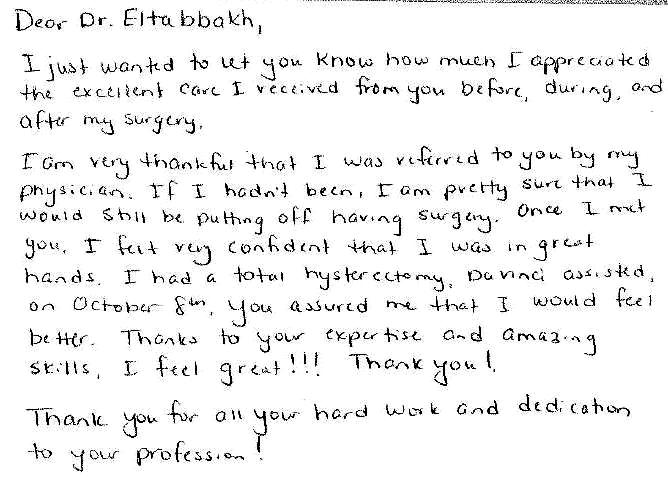 Dear Dr. Eltabbakh,
I just wanted to let you know how much I appreciated
the excellent care I received from you before, during, and
after my surgery.
I am very thankful that I was referred to you by my
physician. If I hadn't been, I am pretty sure that I
would still be putting off having surgery. Once I met
you, I felt very confident that I was in great
hands. I had a total hysterectomy, Da Vinci assisted,
on October 8th, you assured me that I would feel
better. Thanks to your expertise and amazing
skills, I feel great!!! Thank you!
Thank you for all your hard work and dedication
to your profession!